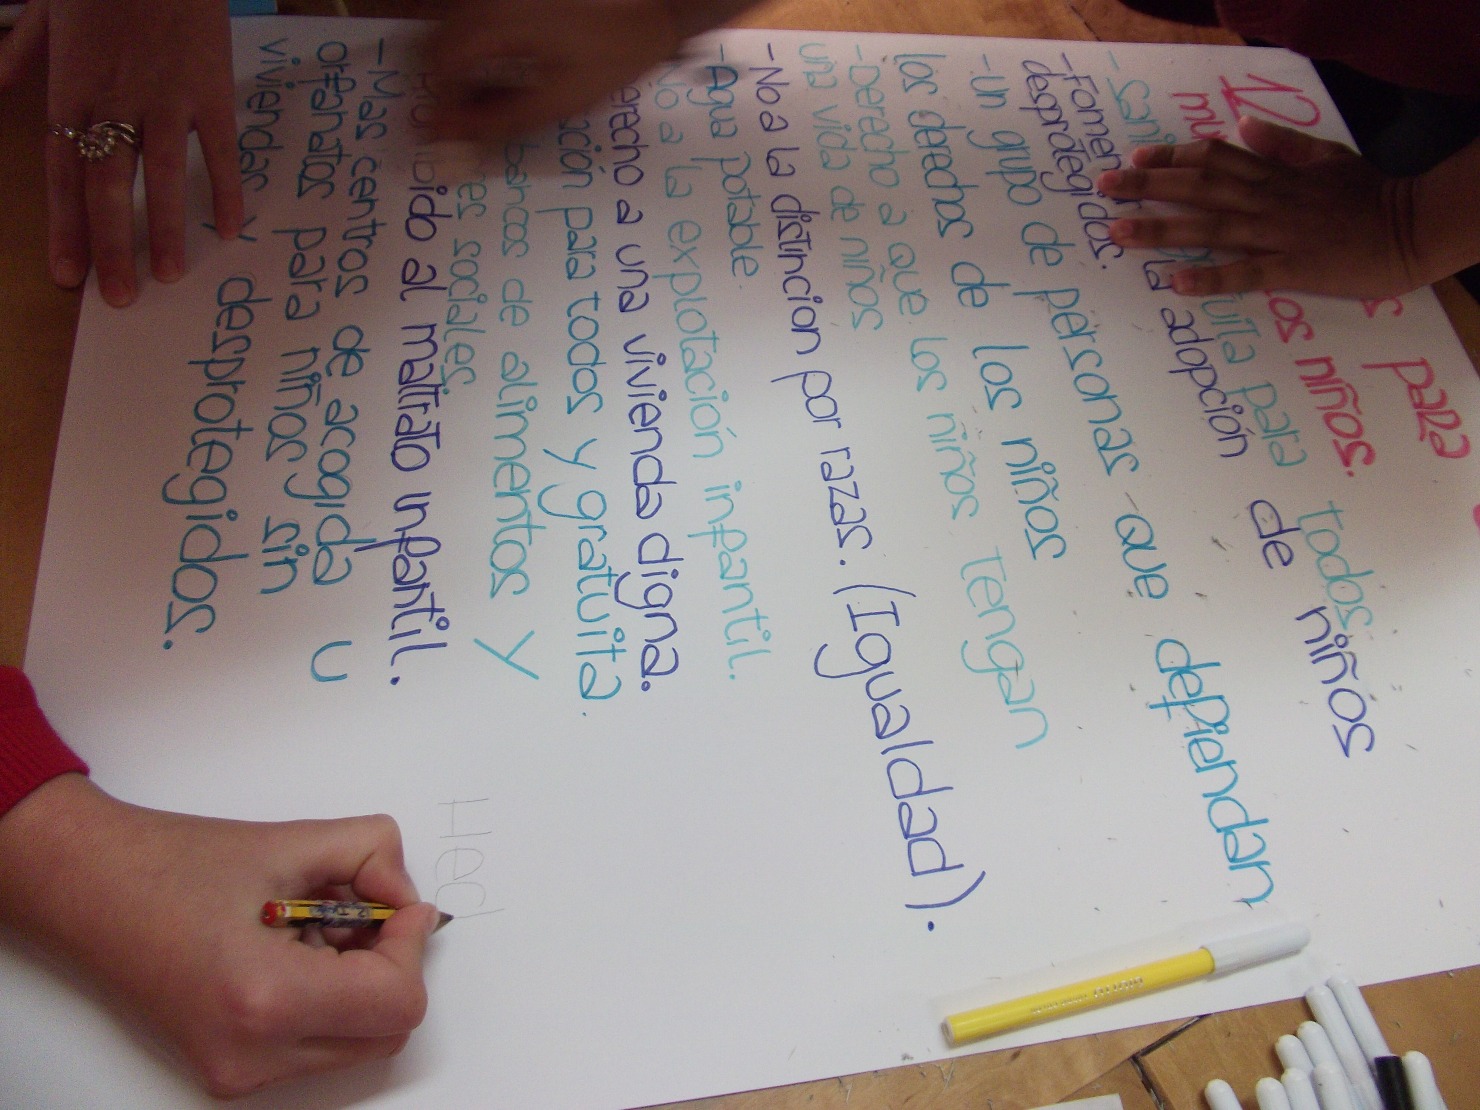 12 para
los niños.
- Sani para todos
- Fomentar la adopción de niños
desprotegidos.
- Un grupo de personas que depiendan
los derechos de los niños
- Derecho a que los niños tengan
una vida de niños.
- No a la distincion por razas. (Igualdad).
- Agua potable
No a la explotación infantil.
erecho a una vivienda digna.
ación para todos y gratuita.
bancos de alimentos y
res sociales.
ido al maltrato infantil.
- Mas centros de acogida u
orfanatos para niños sin
viviendas y desprotegidos.
Hed